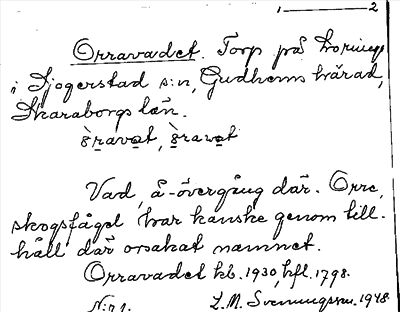 1 — 2
Orravadet. Torp på Torinys
i Sjogerstad s:n, Gudhems härad,
Skaraborgs län.
òravat, òravat
Vad, å-övergång där. Orre,
skogsfågel har kanske genom till-
håll där orsakat namnet.
Orravadet kb. 1930, hfl. 1798.
N:r 1. L. M. Svenungsson. 1948.